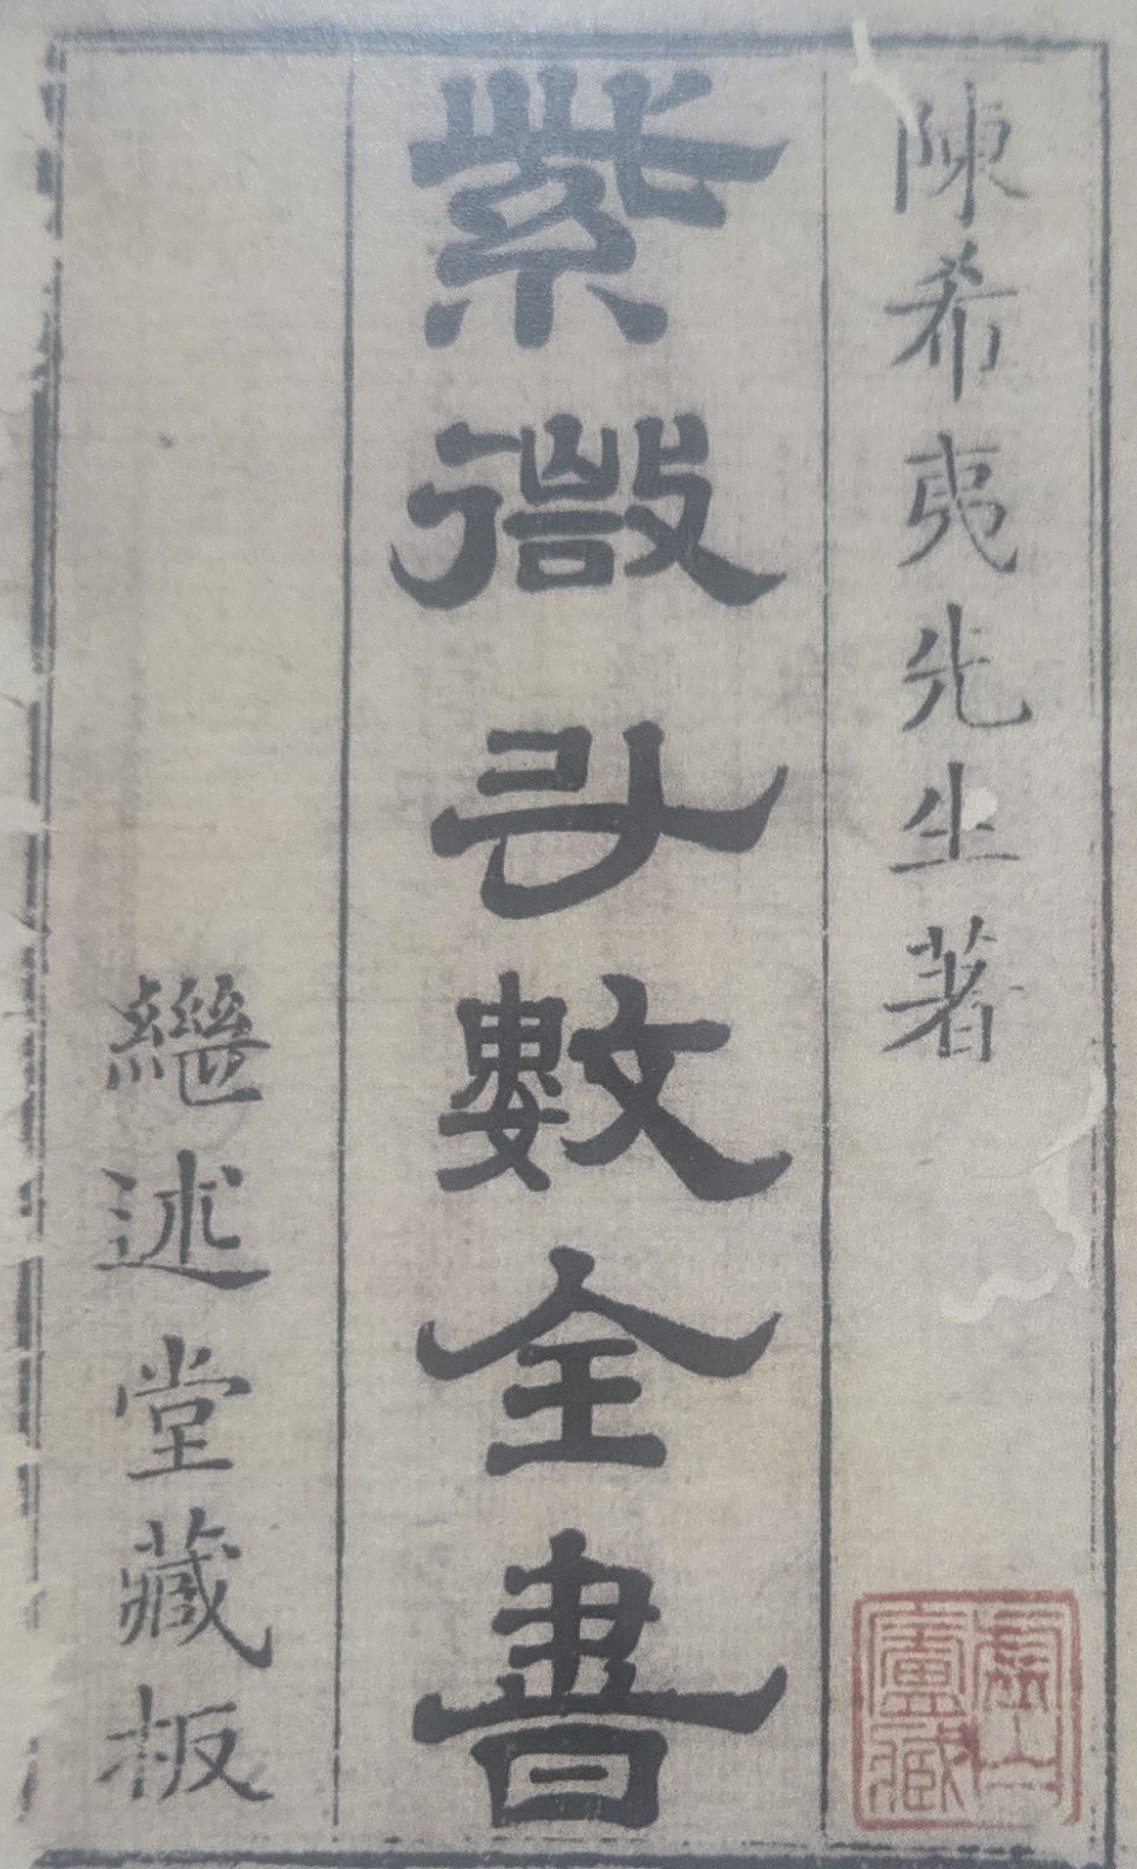 陳希夷先生著
紫微斗數全書
繼述堂藏板